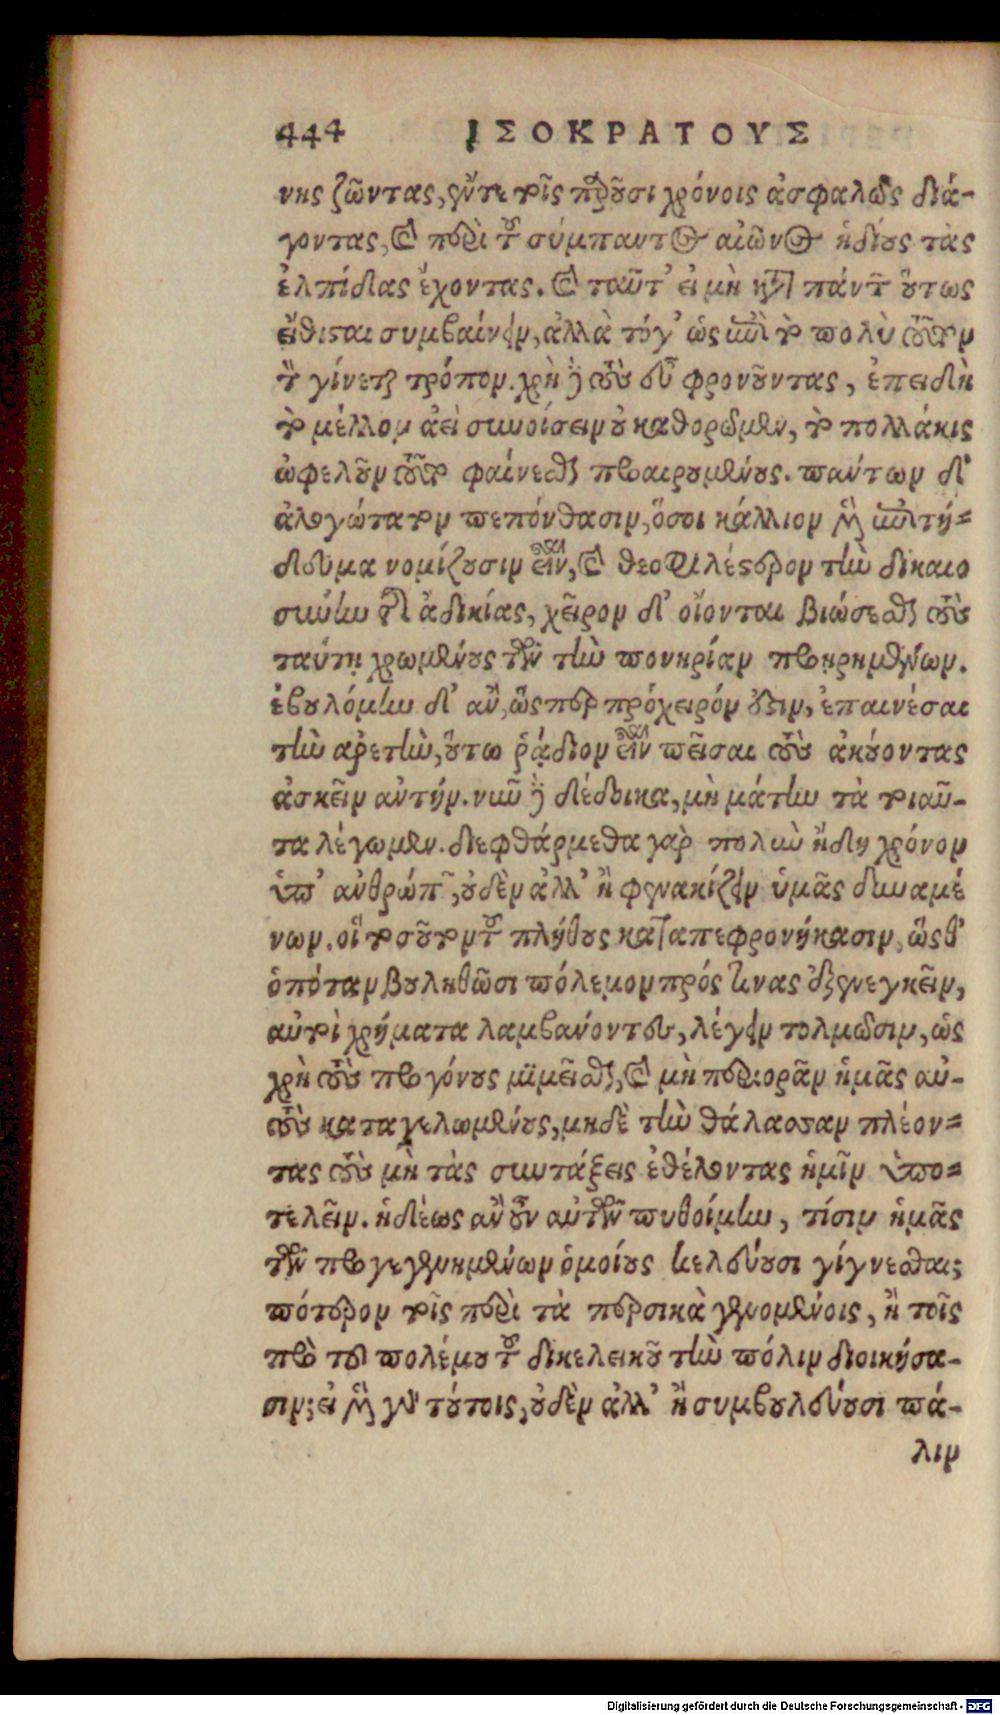 444 ΙΣΟΚΡΑΤΟΥΣ
νης ζῶντας, ἔν τε τοῖς παροῦσι χρόνοις ἀσφαλῶς διά-
γοντας, καὶ περὶ τοῦ σύμπαντος αἰῶνος ἡδίους τὰς
ἐλπίδας ἔχοντας. καὶ ταῦτ' εἰ μὴ κατὰ πάντων οὕτως
εἴθισται συμβαίνειν, ἀλλὰ τόγ' ὡς ἐπὶ τὸ πολὺ τοῦτον
τὸν γίνεται τρόπον. χρὴ δὲ τοὺς εὖ φρονοῦντας, ἐπειδὴ
τὸ μέλλον ἀεὶ συνοίσειν οὐ καθορῶμεν, τὸ πολλάκις
ὠφελοῦν τοῦτο φαίνεσθαι προαιρουμένους. πάντων δ'
ἀλογώτατον πεπόνθασιν, ὅσοι κάλλιον μὲν ἐπιτή-
δευμα νομίζουσιν εἶναι, καὶ θεοφιλέστερον τὴν δικαιο
σύνην τῆς ἀδικίας, χεῖρον δ' οἴονται βιώσεσθαι τοὺς
ταύτῃ χρωμένους τῶν τὴν πονηρίαν προῃρημένων.
ἐβουλόμην δ' ἂν, ὥσπερ πρόχειρόν ἐστιν, ἐπαινέσαι
τὴν ἀρετὴν, οὕτω ῥᾴδιον εἶναι πεῖσαι τοὺς ἀκούοντας
ἀσκεῖν αὐτήν. νῦν δὲ δέδοικα, μὴ μάτην τὰ τοιαῦ-
τα λέγωμεν. διεφθάρμεθα γὰρ πολὺν ἤδη χρόνον
ὑπ' ἀνθρώπων, οὐδὲν ἀλλ' ἢ φενακίζειν ὑμᾶς δυναμέ
νων. οἳ τοσοῦτον τοῦ πλήθους καταπεφρονήκασιν, ὥσθ'
ὁπόταν βουληθῶσι πόλεμον πρός τινας ἐξενεγκεῖν,
αὐτοὶ χρήματα λαμβάνοντες, λέγειν τολμῶσιν, ὡς
χρὴ τοὺς προγόνους μιμεῖσθαι, καὶ μὴ περιορᾶν ἡμᾶς αὐ-
τοὺς καταγελωμένους, μηδὲ τὴν θάλασσαν πλέον-
τας τοὺς μὴ τὰς συντάξεις ἐθέλοντας ἡμῖν ὑπο-
τελεῖν. ἡδέως ἂν οὖν αὐτῶν πυθοίμην, τίσιν ἡμᾶς
τῶν προγεγενημένων ὁμοίους κελεύουσι γίγνεσθαι;
πότερον τοῖς περὶ τὰ περσικὰ γενομένοις, ἢ τοῖς
πρὸ τοῦ πολέμου τοῦ δικελεικοῦ τὴν πόλιν διοικήσα-
σιν; εἰ μὲν γὰρ τούτοις, οὐδὲν ἀλλ' ἢ συμβουλεύουσι πά-
λιν
Digitalisierung gefördert durch die Deutsche Forschungsgemeinschaft - DFG